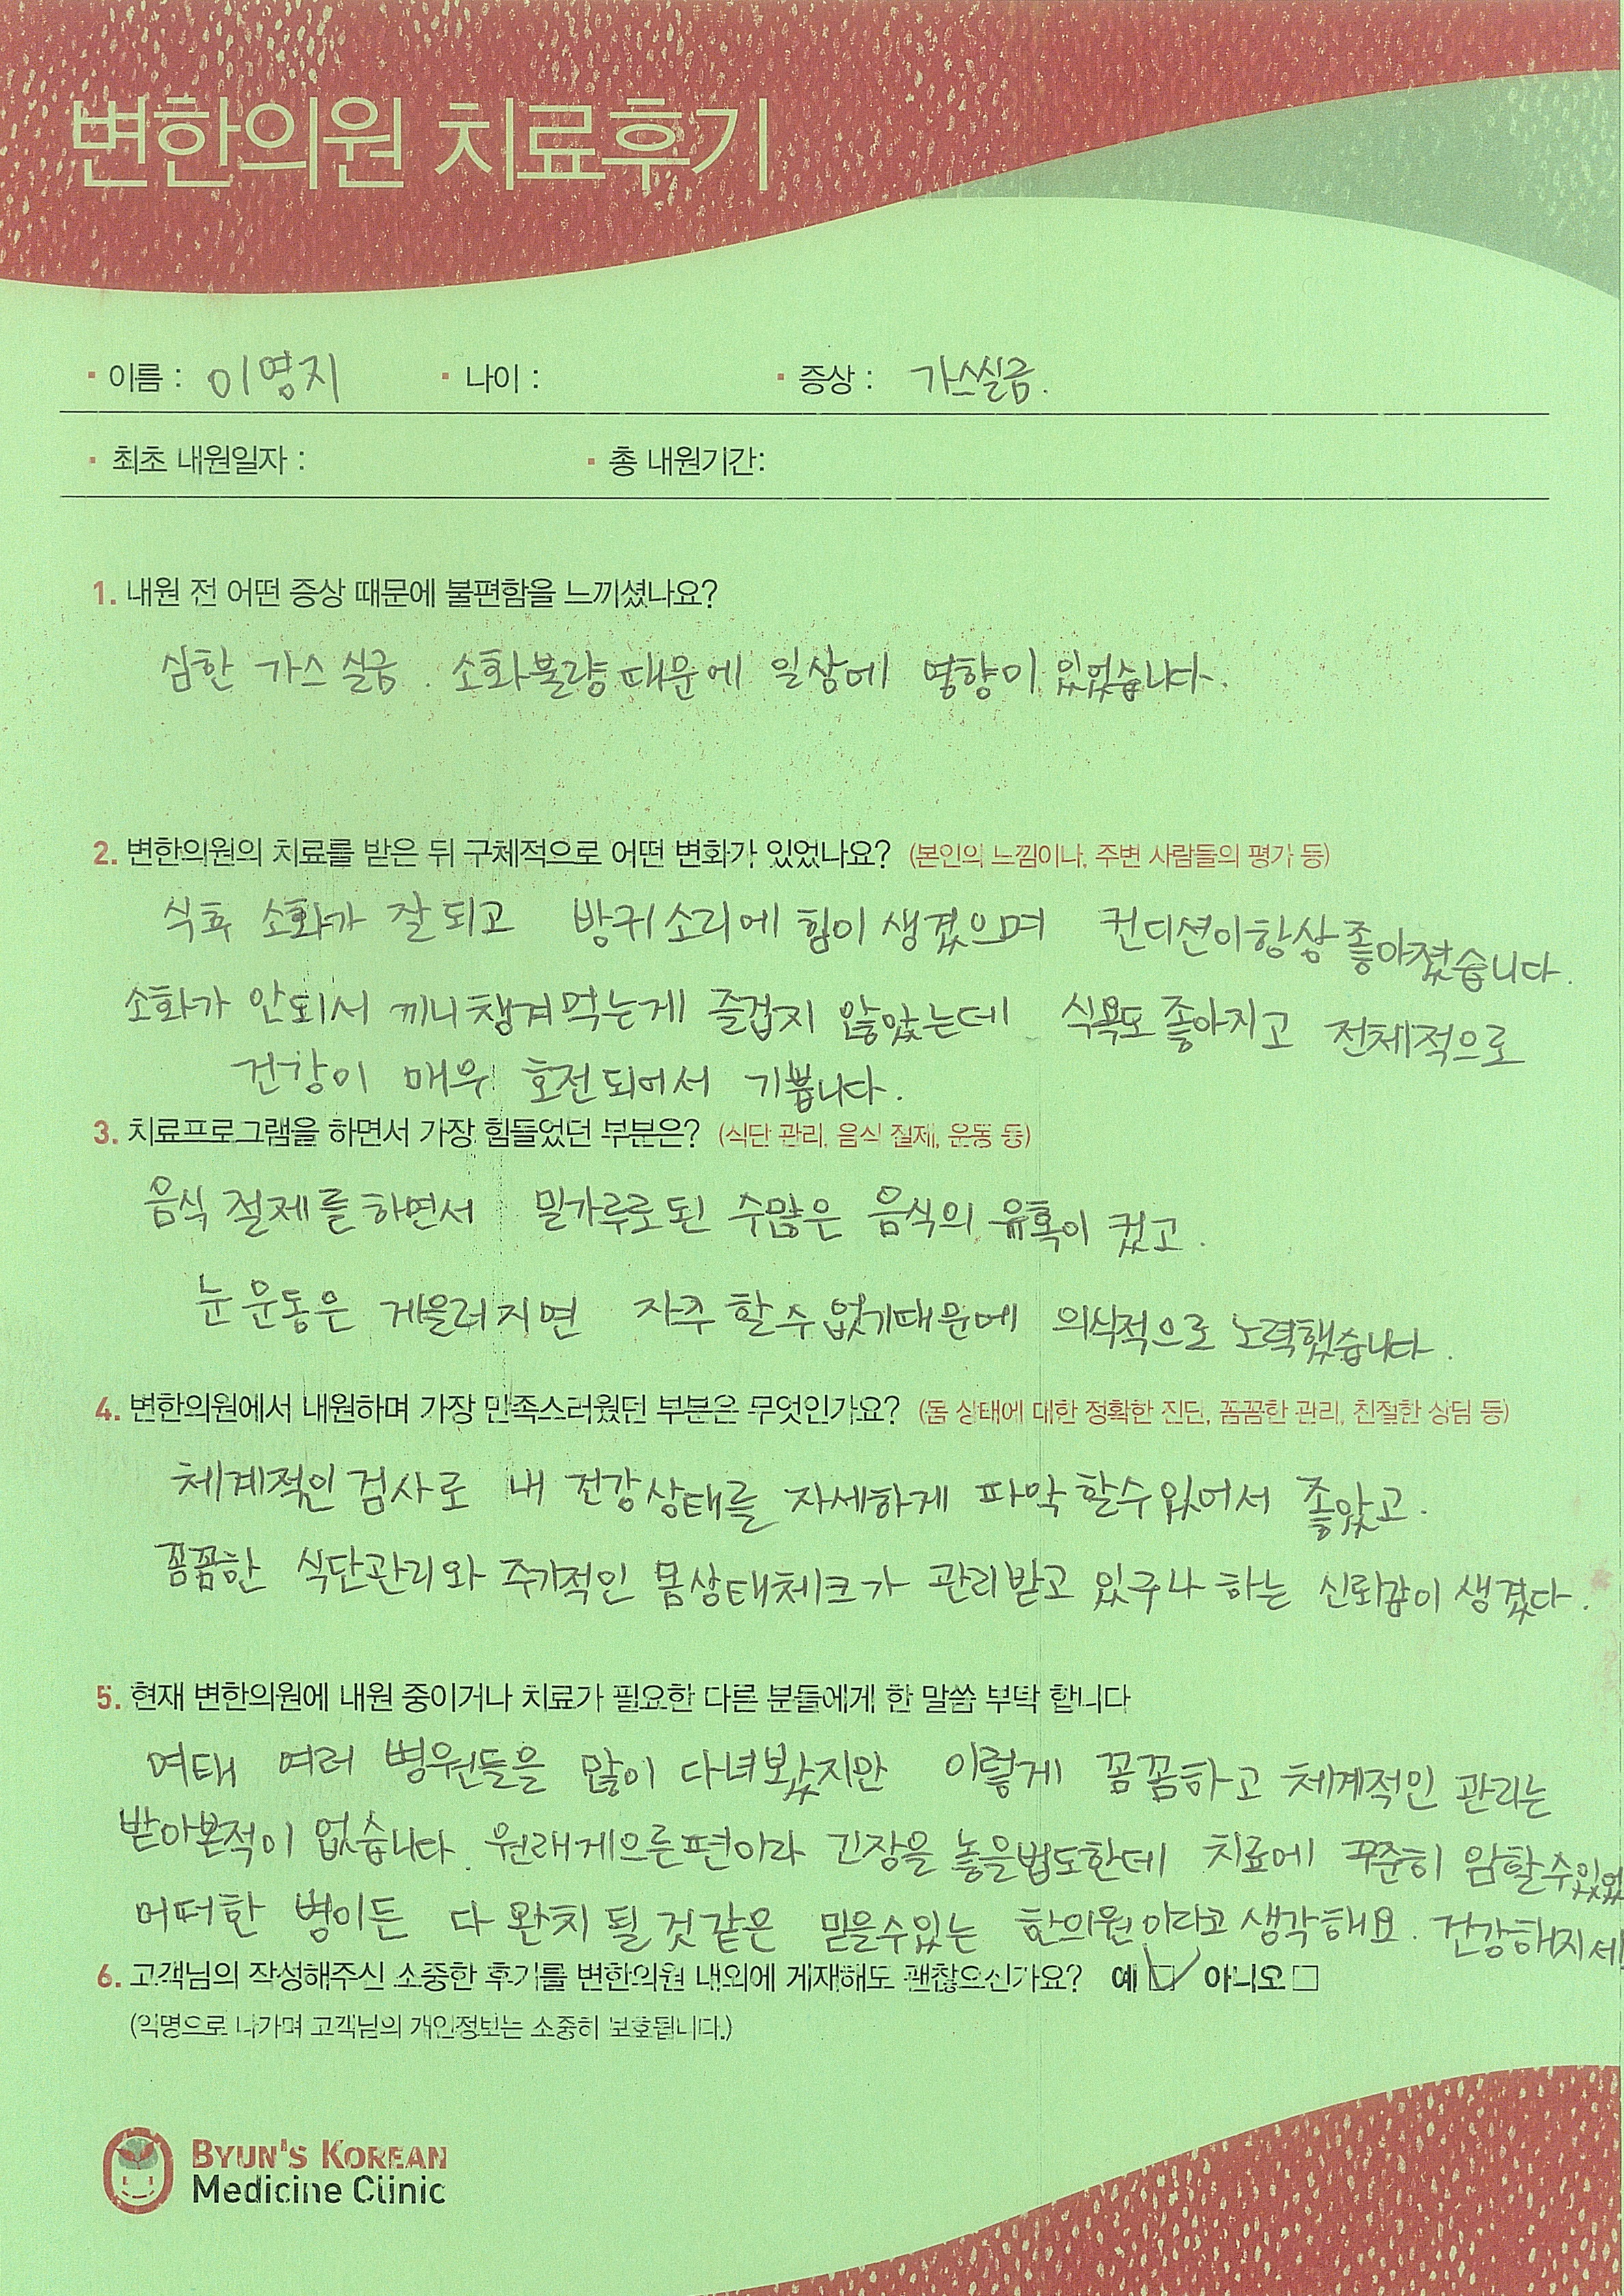 변한의원 치료후기
이름 : 이영지 나이 : 증상 : 가스실금.
최초 내원일자 : 총 내원기간:
1. 내원 전 어떤 증상 때문에 불편함을 느끼셨나요?
심한 가스실금. 소화불량때문에 일상에 영향이 있었습니다.
2. 변한의원의 치료를 받은 뒤 구체적으로 어떤 변화가 있었나요? (본인의 느낌이나, 주변 사람들의 평가 등)
식후 소화가 잘되고 방귀소리에 힘이 생겼으며 컨디션이항상좋아졌습니다.
소화가 안되서 끼니챙겨먹는게 즐겁지 않았는데 식욕도좋아지고 전체적으로
건강이 매우 호전되어서 기쁩니다.
3. 치료프로그램을 하면서 가장 힘들었던 부분은? (식단 관리, 음식 절제, 운동 등)
음식 절제를 하면서 밀가루로된 수많은 음식의 유혹이 컸고.
눈운동은 게을러지면 자주 할수없기때문에 의식적으로 노력했습니다.
4. 변한의원에서 내원하며 가장 만족스러웠던 부분은 무엇인가요? (몸 상태에 대한 정확한 진단, 꼼꼼한 관리, 친절한 상담 등)
체계적인 검사로 내 건강상태를 자세하게 파악할수있어서 좋았고.
꼼꼼한 식단관리와 주기적인 몸상태체크가 관리받고 있구나 하는 신뢰감이 생겼다.
5. 현재 변한의원에 내원 중이거나 치료가 필요한 다른 분들에게 한 말씀 부탁 합니다
여태 여러 병원들을 많이 다녀봤지만 이렇게 꼼꼼하고 체계적인 관리는
받아본적이 없습니다. 원래게으른편이라 긴장을 놓을법도한데 치료에 꾸준히 임할수있었
어떠한 병이든 다 완치 될것같은 믿을수있는 한의원이라고 생각해요. 건강해지세
6. 고객님의 작성해주신 소중한 후기를 변한의원 내외에 게재해도 괜찮으신가요? 예 아니오
(익명으로 나가며 고객님의 개인정보는 소중히 보호됩니다.)
BYUN'S KOREAN
Medicine Clinic